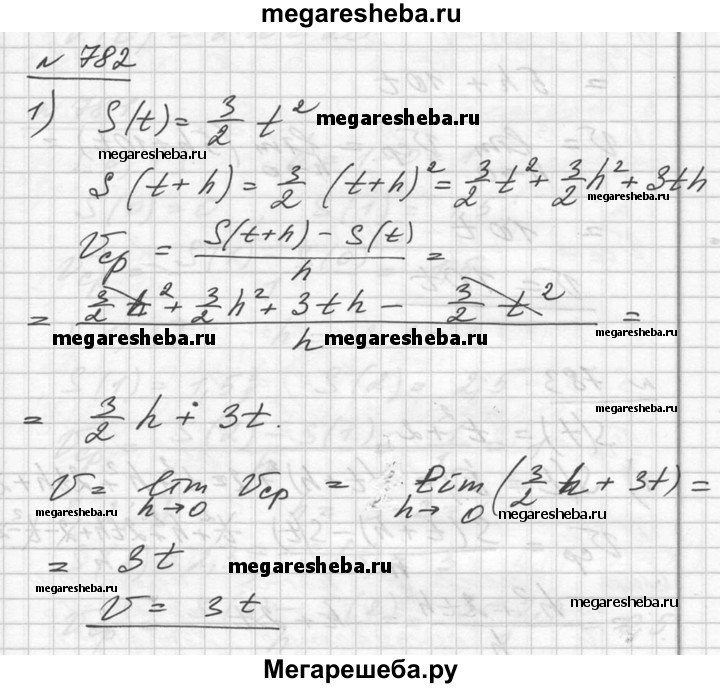 megaresheba.ru
№ 782
1) S(t) = 3/2 t² megaresheba.ru
megaresheba.ru
S(t+h) = 3/2 (t+h)² = 3/2 t² + 3/2 h² + 3th
megaresheba.ru
Vср = (S(t+h) - S(t))/h =
= (3/2 t² + 3/2 h² + 3th - 3/2 t²)/h =
megaresheba.ru megaresheba.ru
= 3/2 h + 3t. megaresheba.ru
V = lim h→0 Vср = lim h→0 (3/2 h + 3t) =
megaresheba.ru megaresheba.ru
= 3t megaresheba.ru
V = 3t megaresheba.ru
Мегарешеба.ру